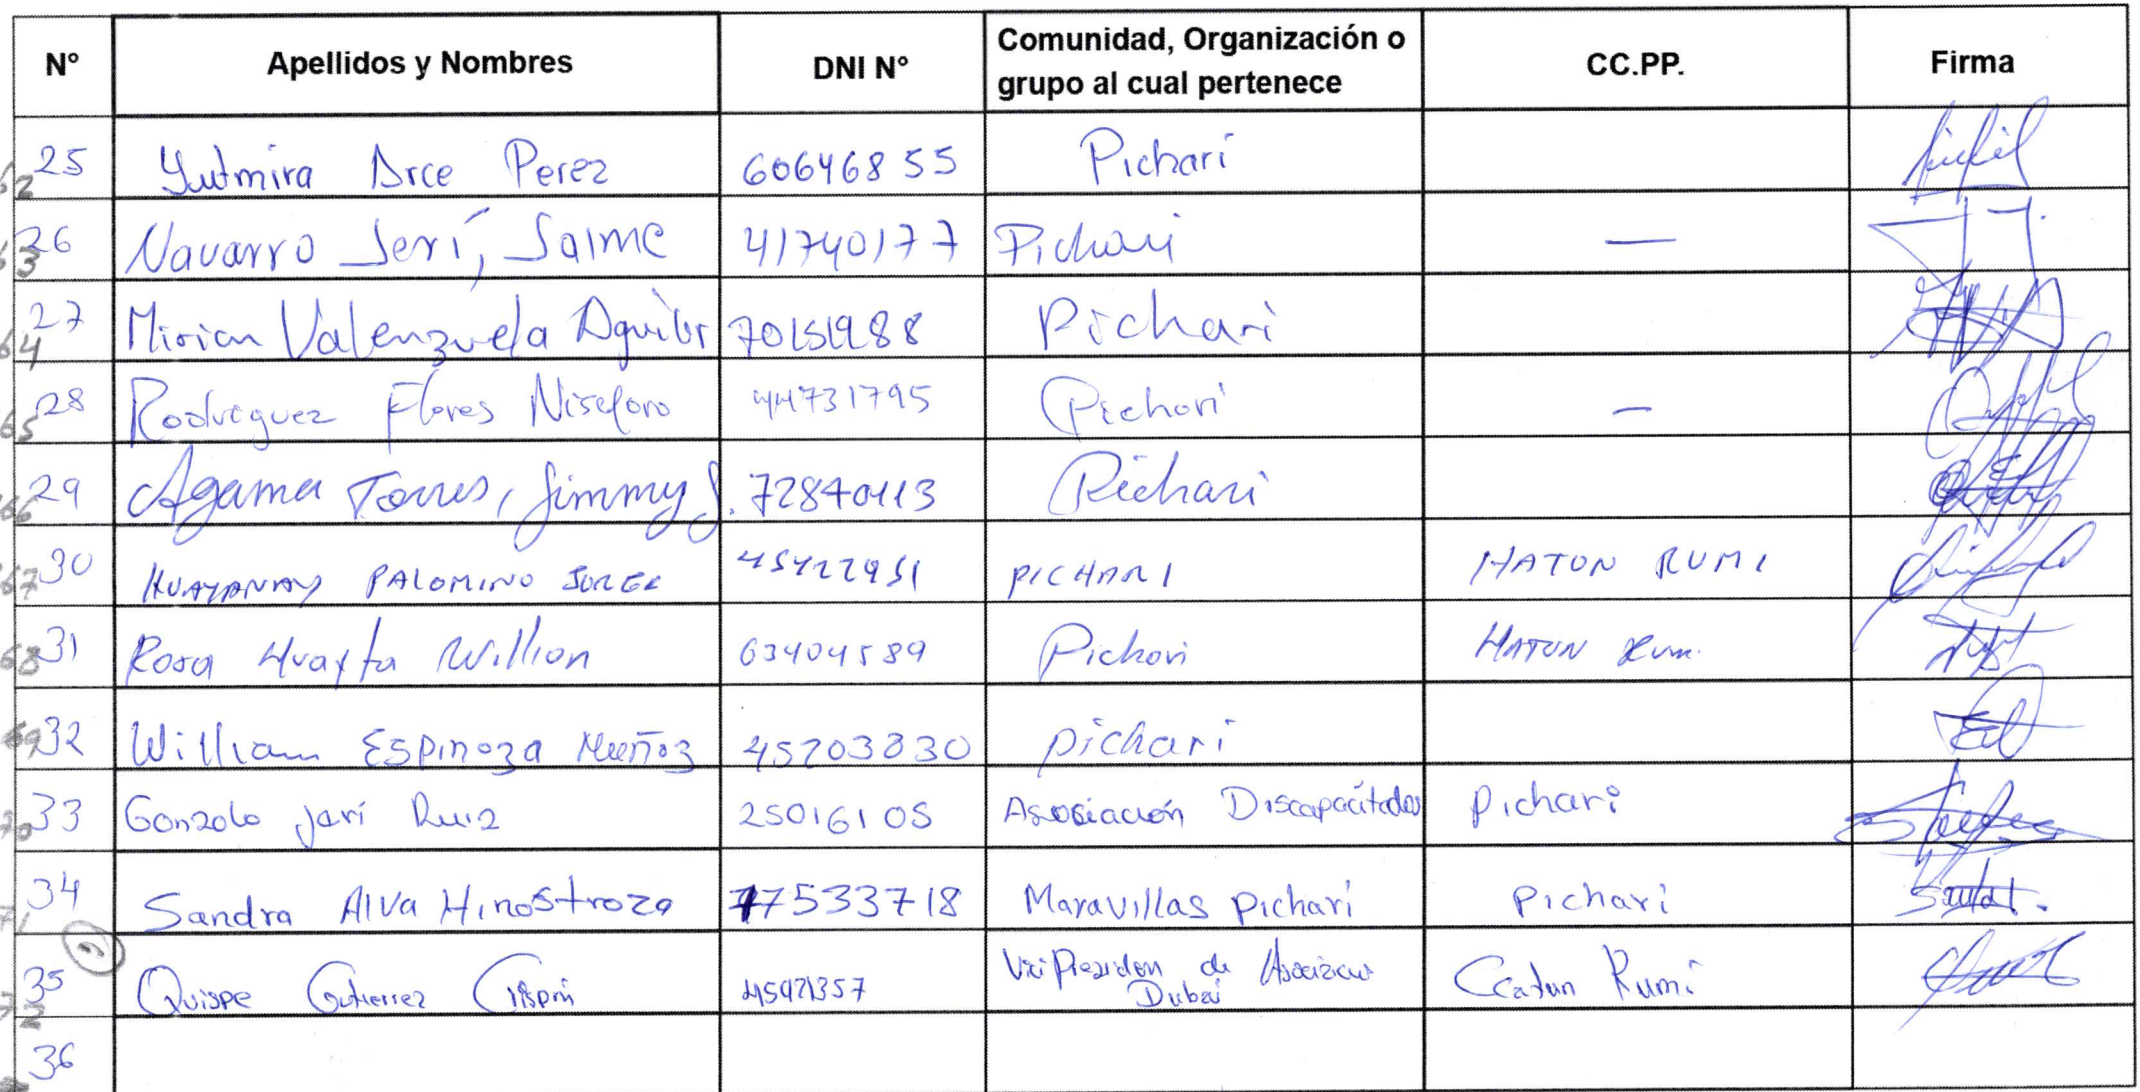 N° Apellidos y Nombres DNI N° Comunidad, Organización o grupo al cual pertenece CC.PP. Firma
25 Yutmira Arce Perez 60646855 Pichari
62
26 Navarro Jerí, Jaime 41740177 Pichari —
63
27 Mirian Valenzuela Aguilar 70151988 Pichari
64
28 Rodriguez Flores Niseforo 44731795 Pichari —
65
29 Agama Torres, Jimmy J. 72840113 Pichari
66
30 HUAYANAY PALOMINO JORGE 45422951 PICHARI HATON RUMI
67
31 Rosa Huayta Willian 63404589 Pichari HATUN Rumi
68
32 William Espinoza Muñoz 45203830 pichari
69
33 Gonzalo Jarí Ruiz 25016105 Asosiación Discapacitados Pichari
70
34 Sandra Alva Hinostroza 77533718 Maravillas pichari Pichari
71
35 Quispe Gutierrez Crispin 45921357 Vici Presiden de Asociacion Dubai Ccatun Rumi
72
36